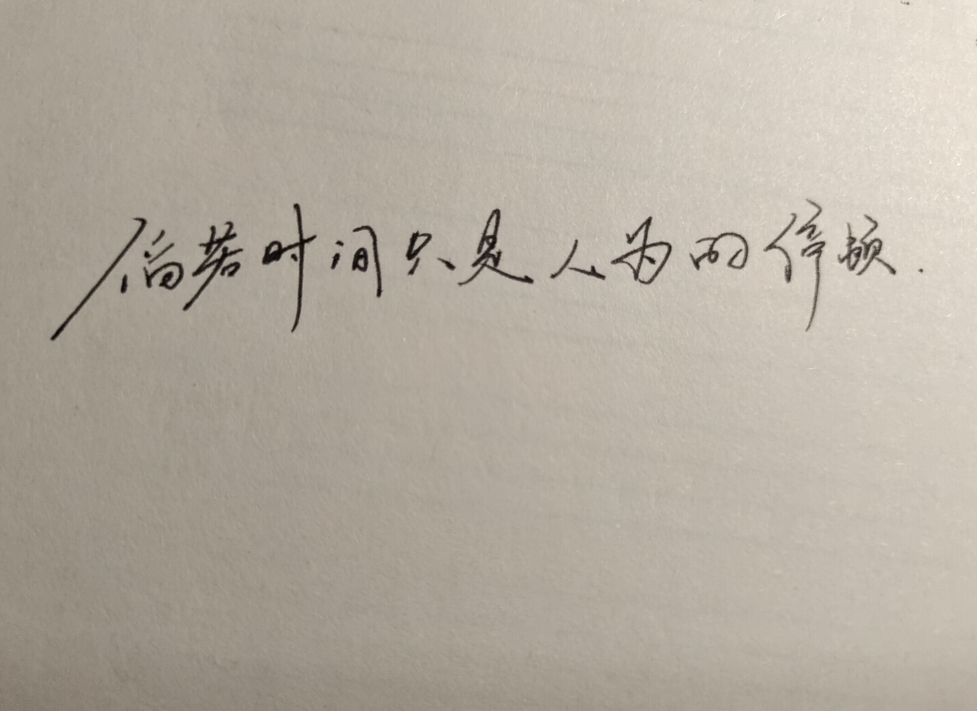 倘若时间只是人为的停顿.